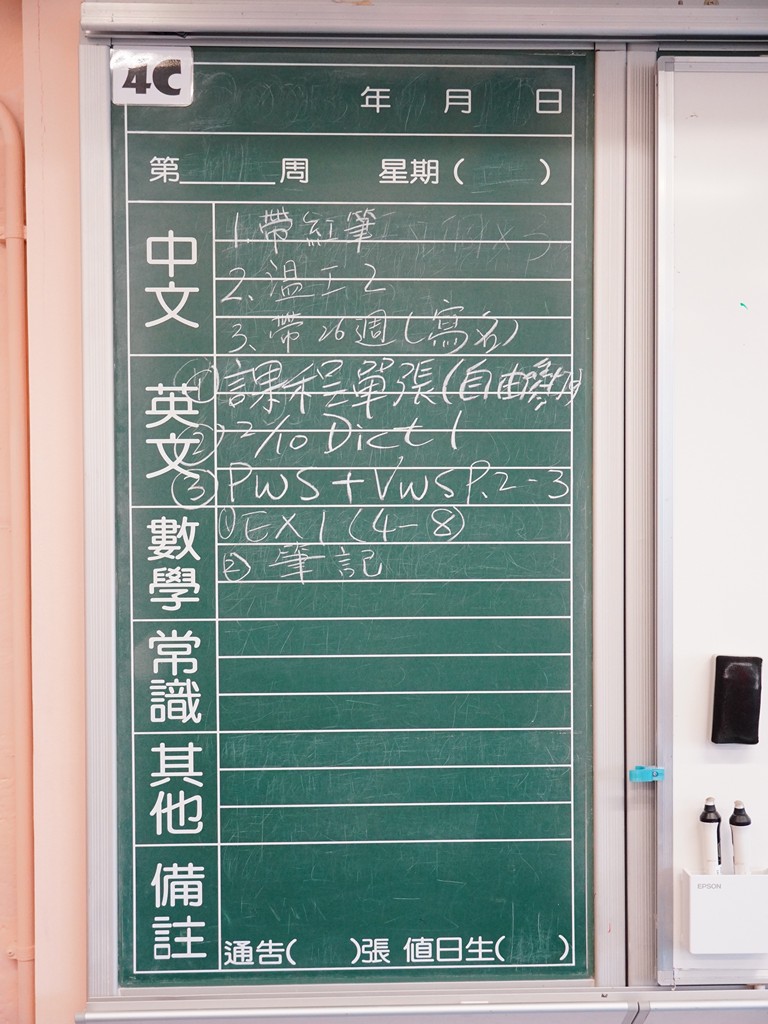 4C
年 月 日
第______周 星期( )
中文
1. 帶紅筆
2. 溫工2
3. 帶26週(寫名)
英文
① 課程單張(自由參加)
② 2/10 Dict 1
③ PWS + VWS P.2-3
數學
① EX 1 (4-8)
② 筆記
常識
其他
備註
通告( )張 值日生( )
EPSON